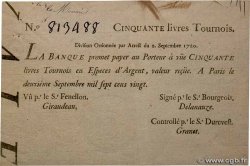 No. 813488 CINQUANTE livres Tournois.
Division Ordonnée par Arrest du 2. Septembre 1720.
LA BANQUE promet payer au Porteur à vüe CINQUANTE
livres Tournois en Especes d'Argent, valeur reçüe. A Paris le
deuxième Septembre mil sept cens vingt.
Vû p.r le S.r Fenellon. Signé p.r le S.r Bourgeois,
Giraudeau. Delanauze.
Controllé p.r le S.r Durevest.
Granet.